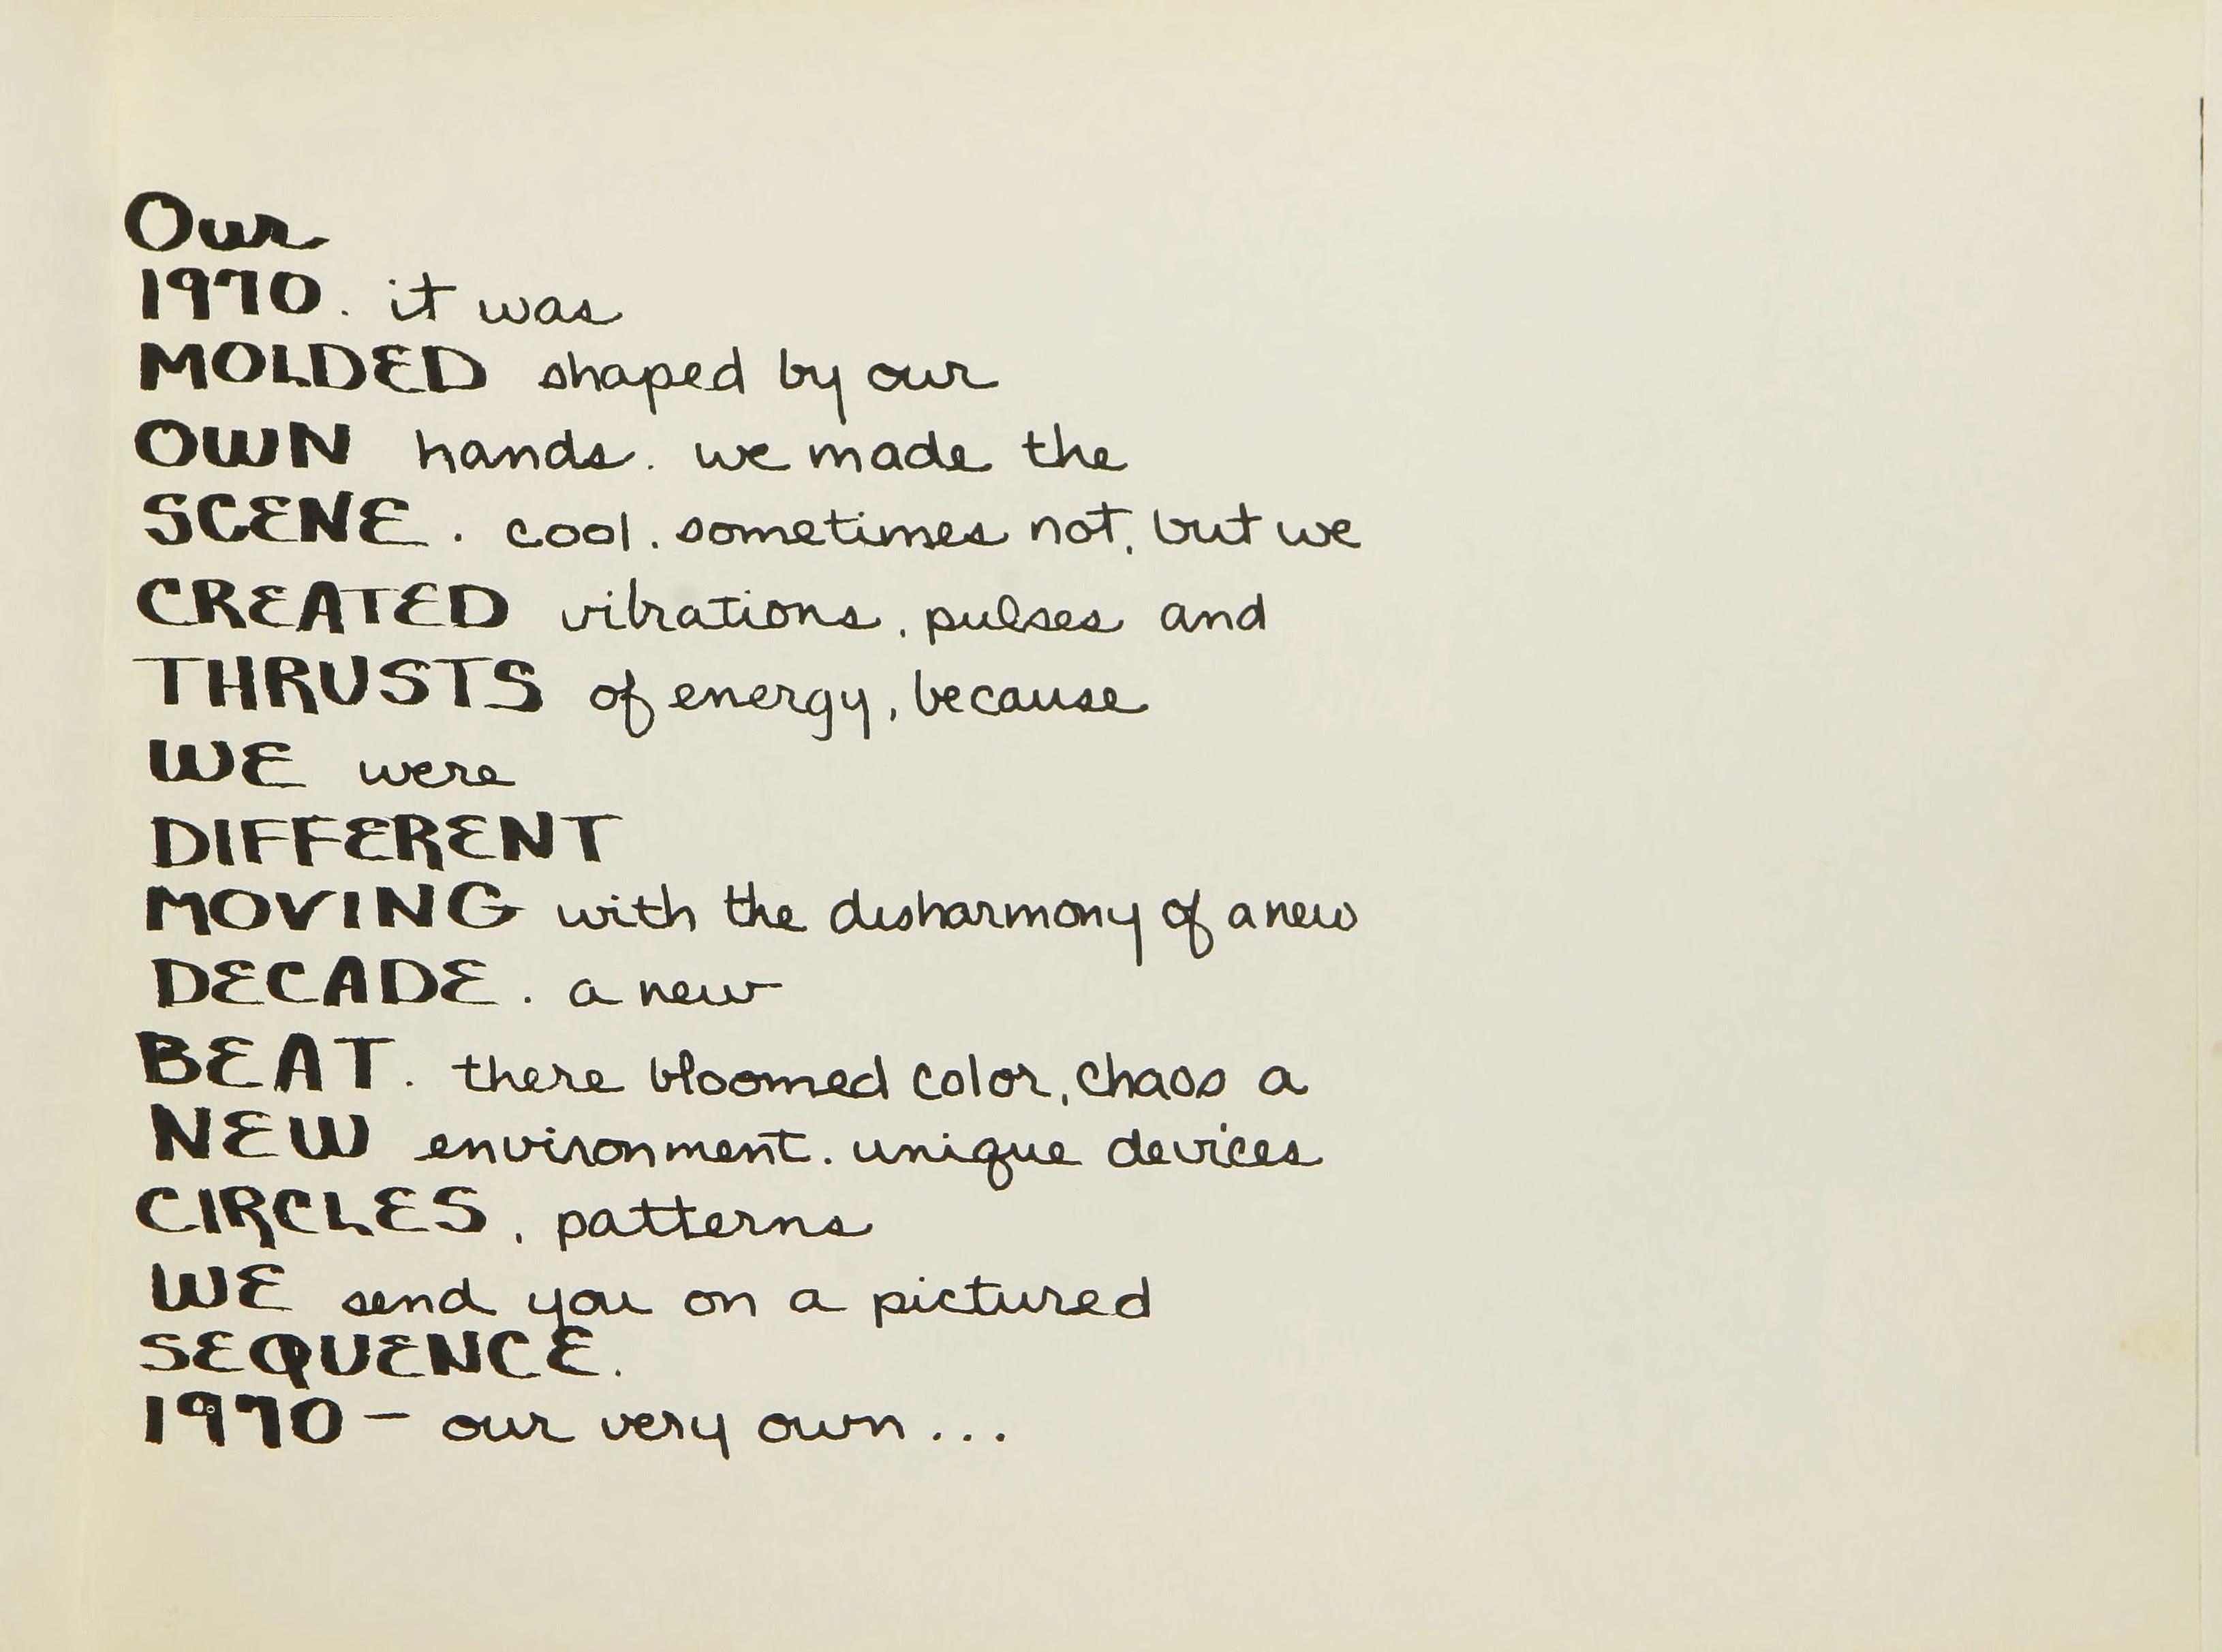 Our
1970. it was
MOLDED shaped by our
OWN hands. we made the
SCENE. cool. sometimes not, but we
CREATED vibrations, pulses and
THRUSTS of energy, because
WE were
DIFFERENT
MOVING with the disharmony of a new
DECADE. a new
BEAT. there bloomed color, chaos a
NEW environment. unique devices
CIRCLES, patterns
WE send you on a pictured
SEQUENCE.
1970 – our very own...